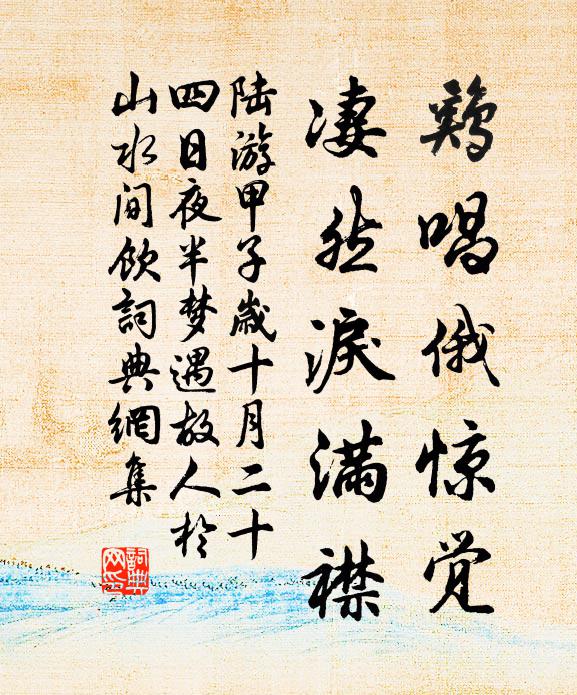 鷄唱俄惊觉
凄然淚满襟
陆游甲子歲十月二十
四日夜半梦遇故人於
山水间饮詞典網集
詞典
网印